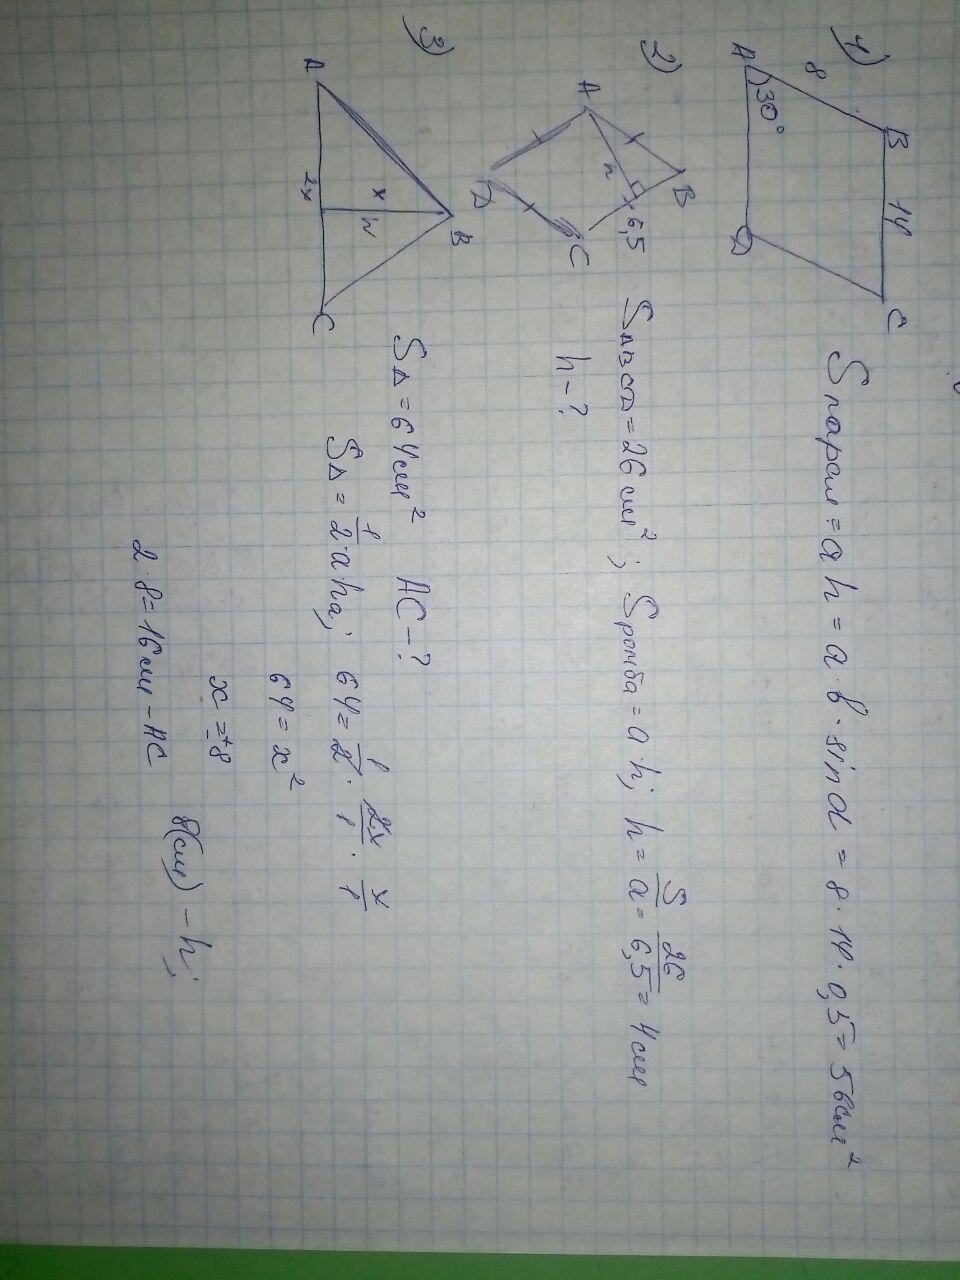 1)
A
8
B
14
C
D
30°
Sпарал = a h = a · b · sin α = 8 · 14 · 0,5 = 56 см²
2)
A
B
6,5
C
D
h
SABCD = 26 см²; Sромба = a h; h = S/a = 26/6,5 = 4 см
h - ?
3)
A
B
C
x
h
2x
S∆ = 64 см² AC - ?
S∆ = 1/2 · a ha; 64 = 1/2 · 2x/1 · x/1
64 = x²
x = ±8
8(см) - h;
2 · 8 = 16 см - AC